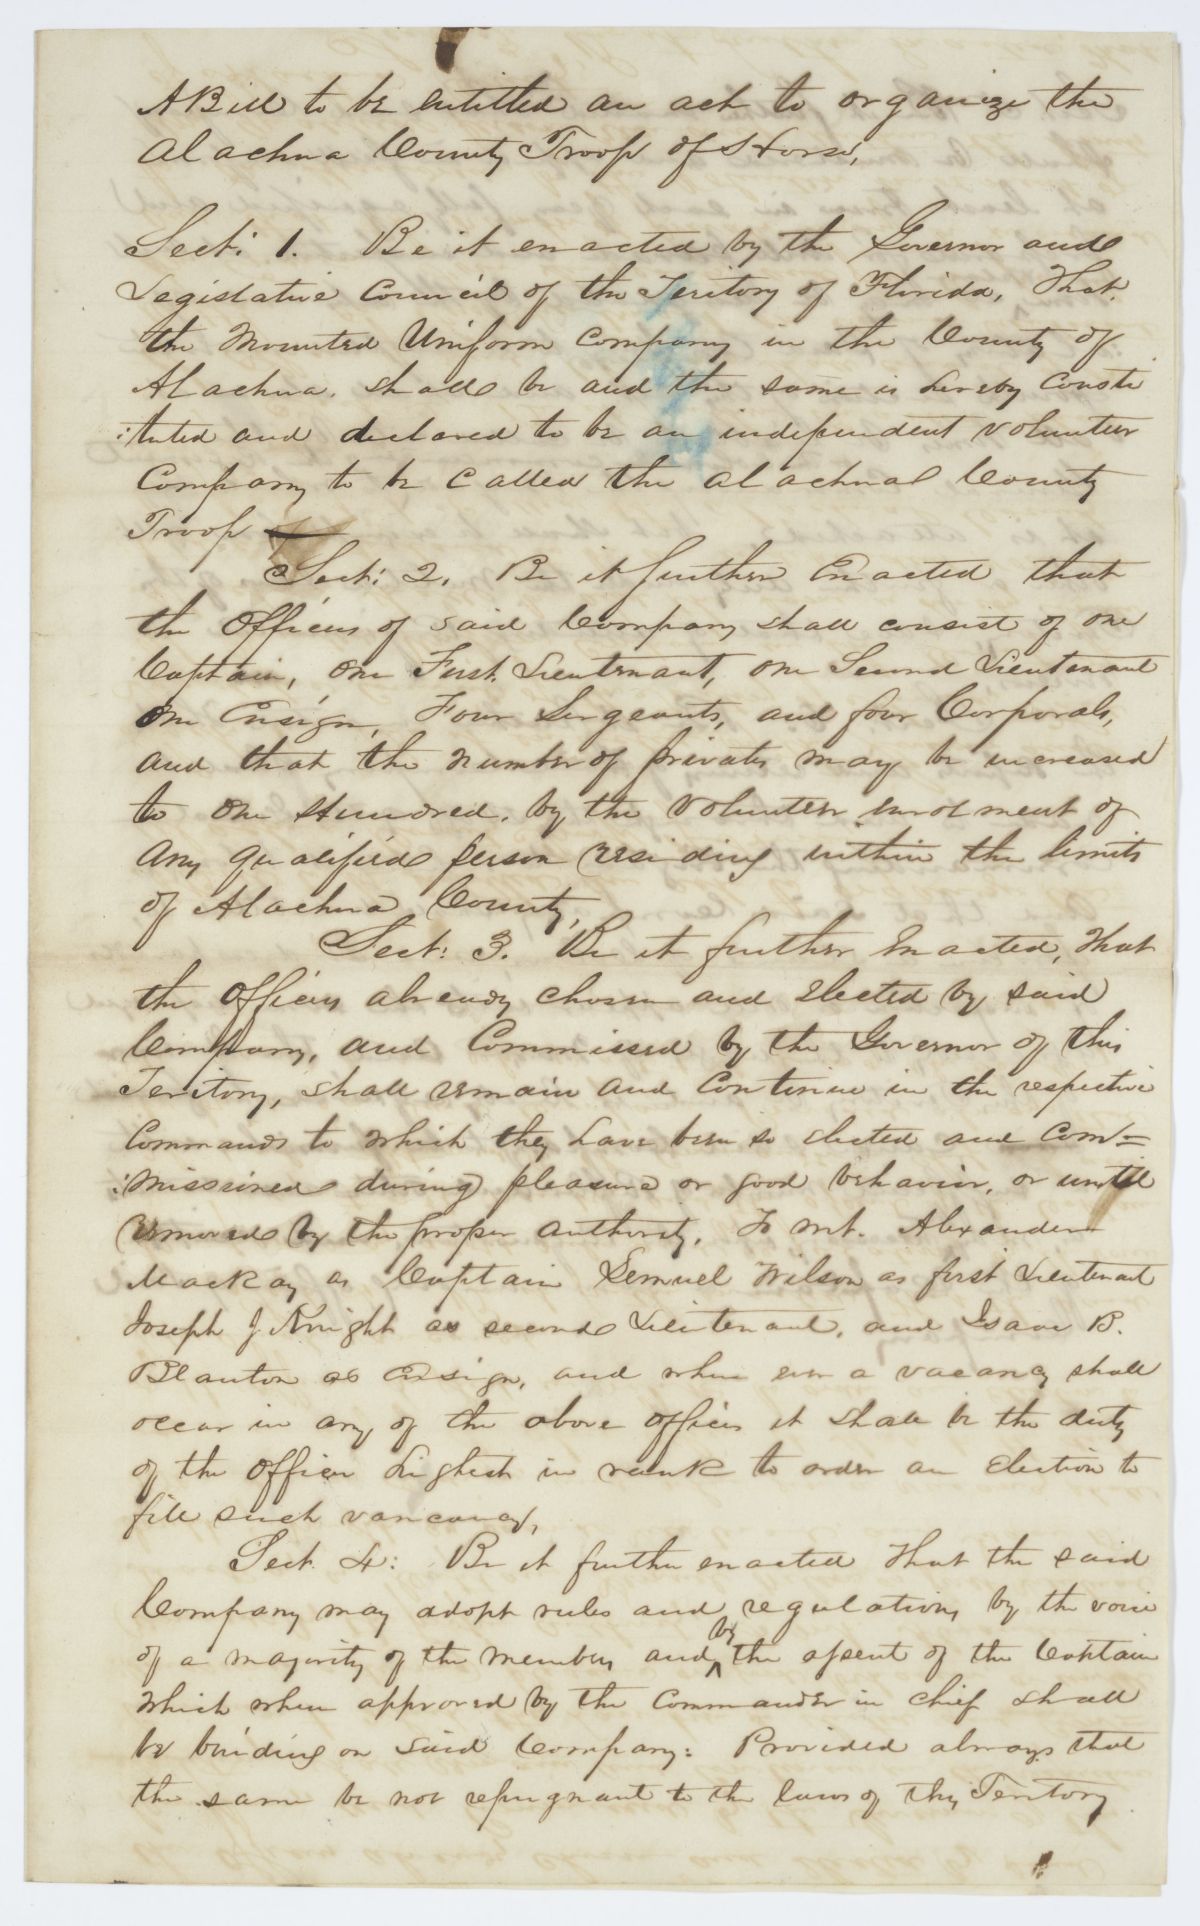 A Bill to be entitled an act to organize the
Alachua County Troop of Horse,
Sect: 1. Be it enacted by the Governor and
Legislative Council of the Teritory of Florida, That
the Mounted Uniform Company in the County of
Alachua. shall be and the same is hereby Consti
:tuted and declared to be an independent Volunteer
Company to be Called the Alachua County
Troop
Sect: 2. Be it further Enacted that
the Officers of said Company shall consist of one
Captain, one First Lieutenant, one Second Lieutenant
One Ensign, Four Sergeants, and four Corporals,
and that the number of privates may be increased
to one Hundred, by the Volunteer enrolment of
Any qualified person residing within the limits
of Alachua County,
Sect: 3. Be it further Enacted, That
the Officers already chosen and elected by said
Company, and Commissed by the Governor of this
Teritory, shall remain and Continue in the respective
Commands to which they have been so elected and com=
:missioned during pleasure or good behavior, or until
removed by the proper authority. To wit. Alexander
Mackay as Captain Lemuel Wilson as first Lieutenant
Joseph J. Knight as second Lieutenant, and Isaac B.
Blanton as Ensign, and when ever a vacancy shall
occur in any of the above offices it shall be the duty
of the Officer highest in rank to order an election to
fill such vancancy,
Sect. 4: Be it further enacted That the said
Company may adopt rules and regulations by the voice
of a majority of the members and by the assent of the Captain
Which when approved by the Commander in chief shall
be binding on said Company: Provided always that
the same be not repugnant to the laws of this Teritory